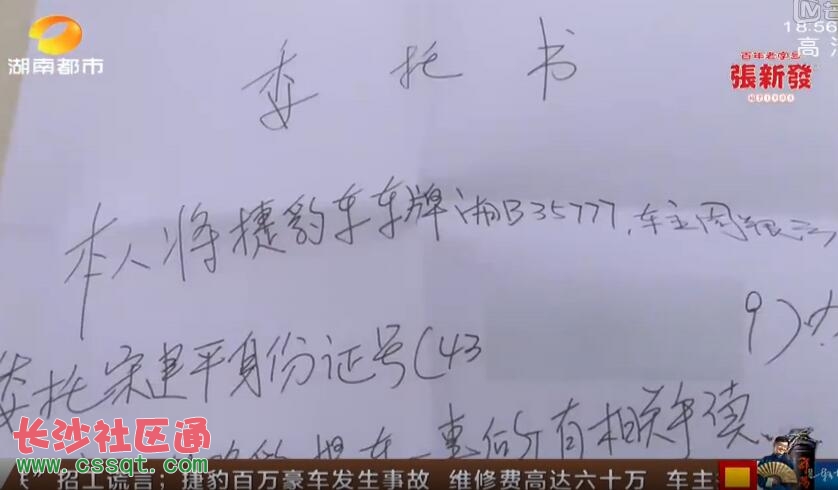 18:56
湖南都市
高
百年老字号
張新發
委托书
本人将捷豹车车牌湘B35777,车主周
委托宋建平身份证号(43 9)
提车一事的所有相关手续
长沙社区通
www.cssqt.com
招工谎言；捷豹百万豪车发生事故 维修费高达六十万 车主